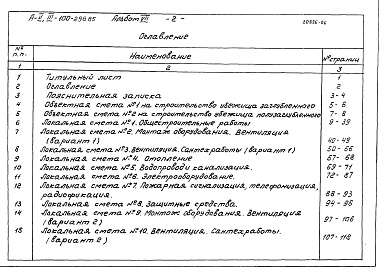 А-II,III-100-298.85 Альбом VII - 2 -
20936-06
Оглавление
№ п.п. Наименование № страниц
1 2 3
1 Титульный лист 1
2 Оглавление 2
3 Пояснительная записка 3-4
4 Объектная смета №1 на строительство убежища заглубленного 5-6
5 Объектная смета №2 на строительство убежища полузаглубленного 7-8
6 Локальная смета №1. Общестроительные работы 9-39
7 Локальная смета №2. Монтаж оборудования. Вентиляция
(вариант 1) 40-49
8 Локальная смета №3. Вентиляция. Сантехработы (вариант 1) 50-66
9 Локальная смета №4. Отопление 67-68
10 Локальная смета №5. Водопровод и канализация. 69-71
11 Локальная смета №6. Электрооборудование. 72-87
12 Локальная смета №7. Пожарная сигнализация, телефонизация,
радиофикация. 88-93
13 Локальная смета №8. Защитные средства. 94-96
14 Локальная смета №9. Монтаж оборудования. Вентиляция
(вариант 2) 97-106
15 Локальная смета №10. Вентиляция. Сантехработы.
(вариант 2) 107-118